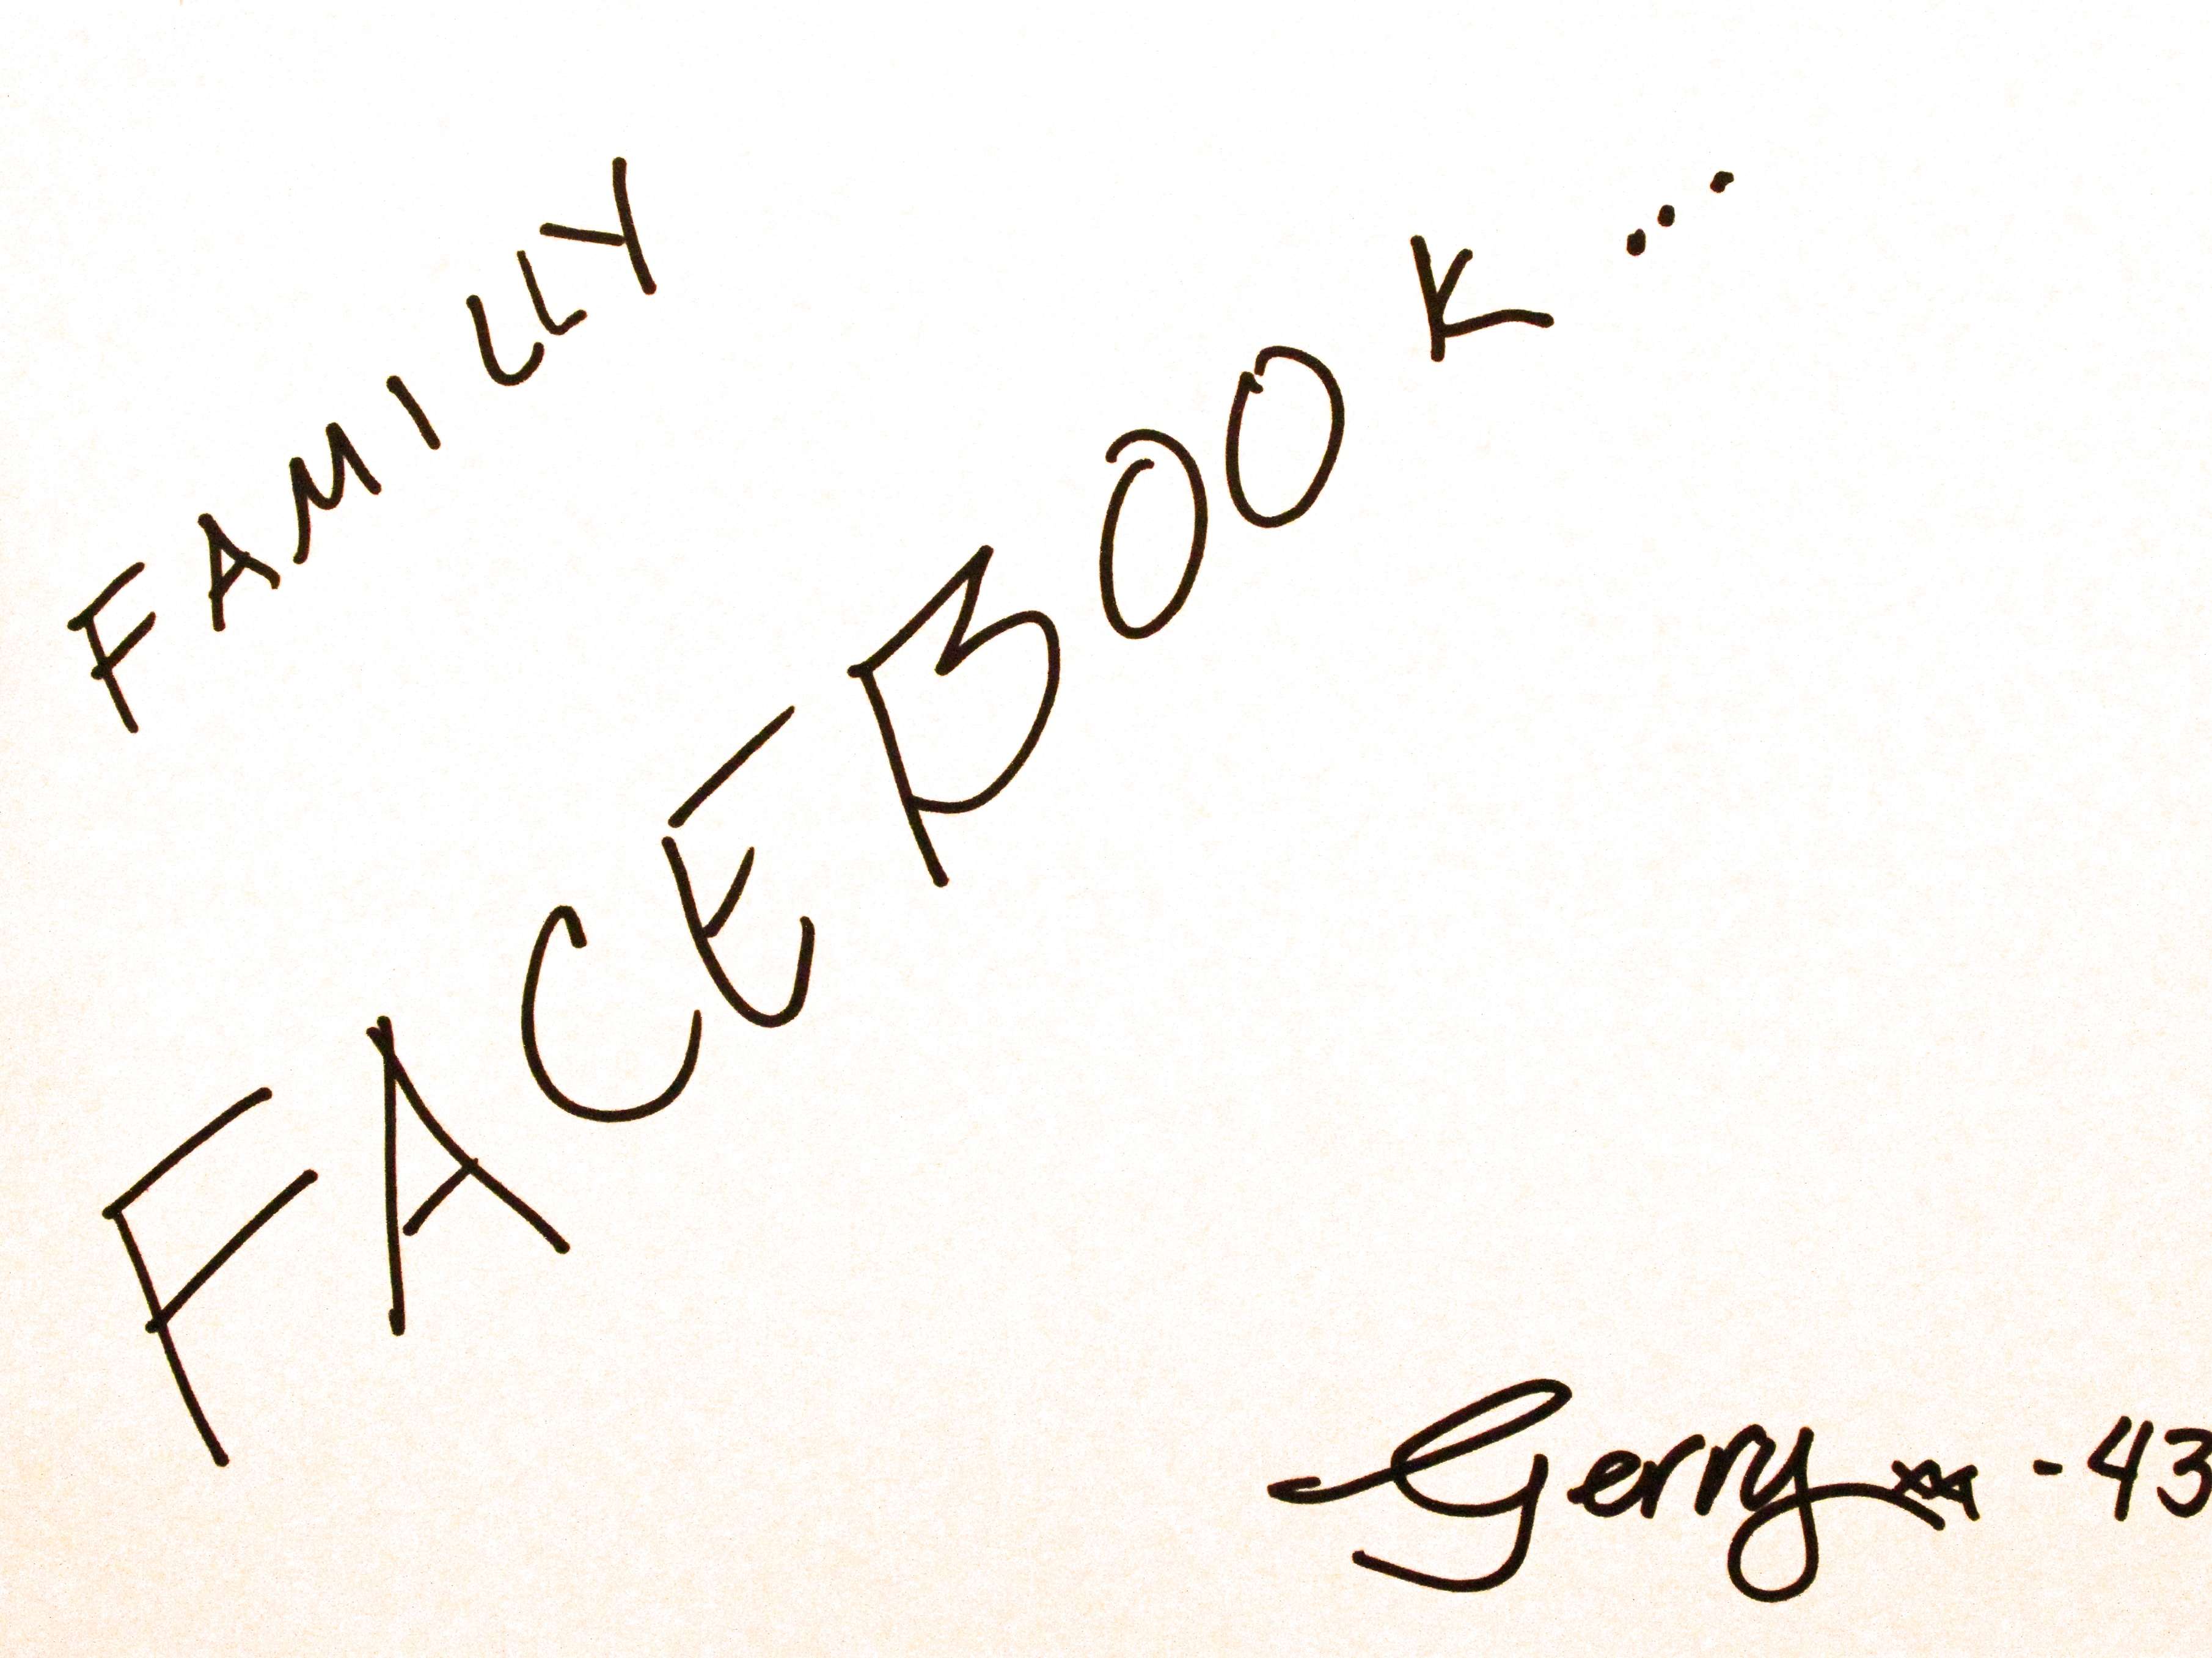 FAMILLY
FACEBOOK...
Gerry xx -43